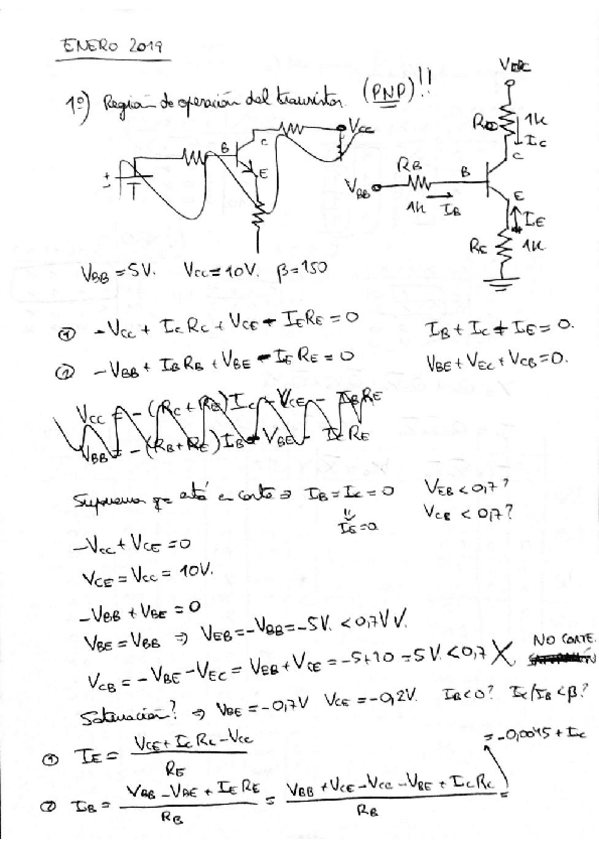 ENERO 2019
1º) Región de operación del transistor. (PNP)!!
VCC
RC 1k
IC
B C VCC
E
RB B C
VBB 1k IB E
IE
RE 1k
VBB = 5V. VCC = 10V. β = 150
① -VCC + IC RC + VCE - IE RE = 0 IB + IC + IE = 0.
② -VBB + IB RB + VBE - IE RE = 0 VBE + VEC + VCB = 0.
VCC = -(RC + RE) IC - VCE - IB RE
VBB = -(RB + RE) IB - VBE - IC RE
Supongamos que está en corte ⇒ IB = IC = 0 VEB < 0,7?
IE = 0 VCB < 0,7?
-VCC + VCE = 0
VCE = VCC = 10V.
-VBB + VBE = 0
VBE = VBB ⇒ VEB = -VBB = -5V. < 0,7V √.
VCB = -VBE - VEC = VEB + VCE = -5 + 10 = 5V. < 0,7 X NO CORTE.
Saturación? ⇒ VBE = -0,7V VCE = -0,2V. IB < 0? IC/IB < β?
① IE = (VCE + IC RC - VCC) / RE
② IB = (VBB - VBE + IE RE) / RB = (VBB + VCE - VCC - VBE + IC RC) / RB = = -0,0045 + IC